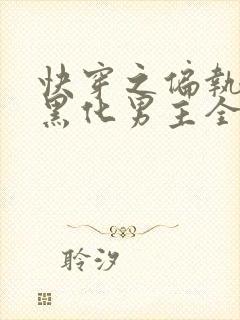 快穿之偏执
黑化男主全
聆汐